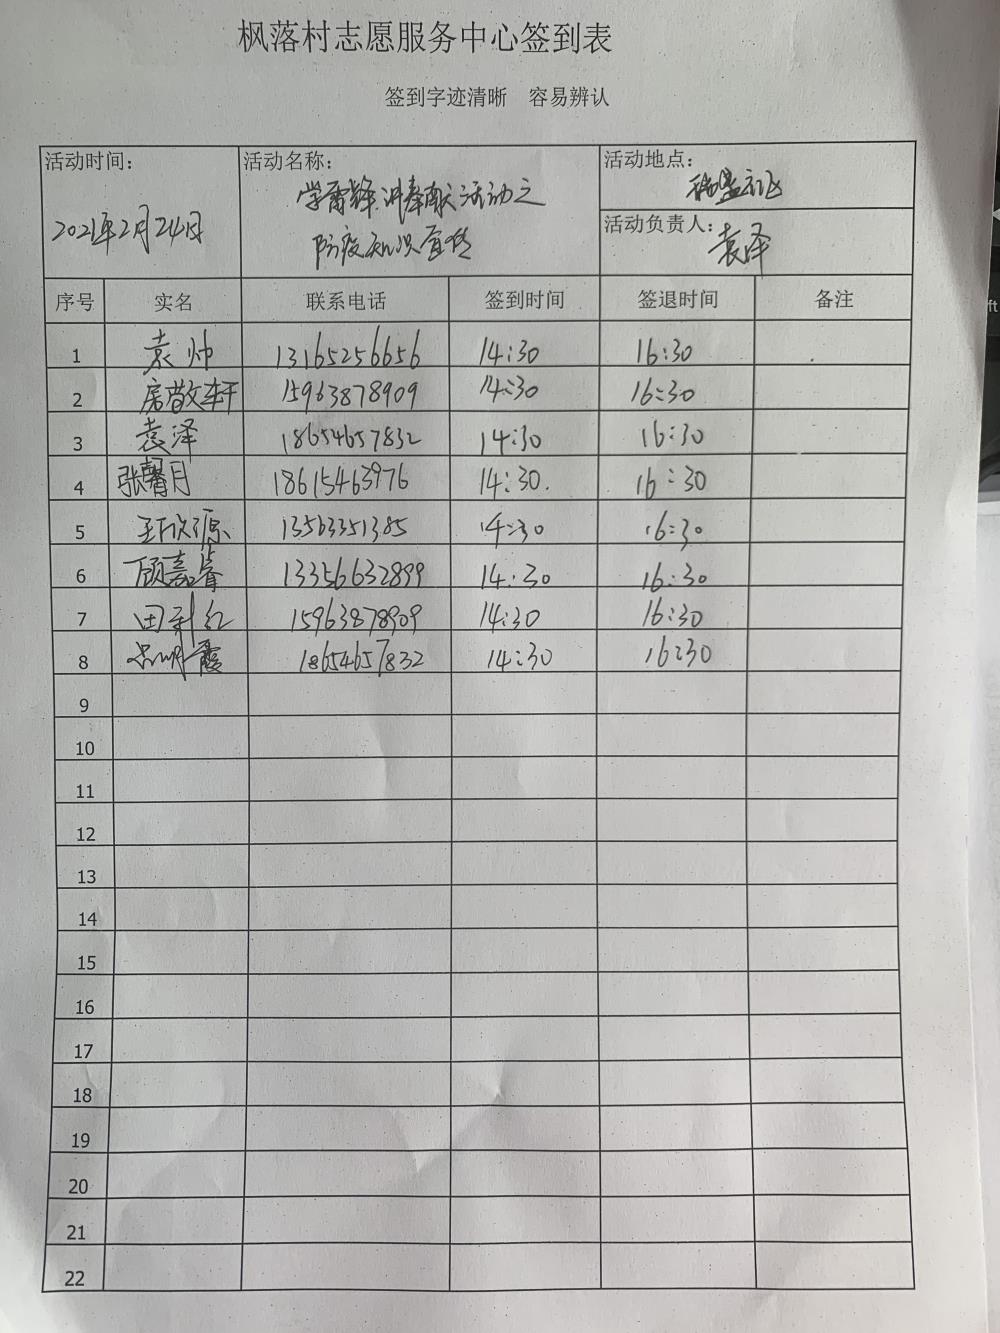 枫落村志愿服务中心签到表
签到字迹清晰 容易辨认
活动时间: 2021年2月24日
活动名称: 学雷锋.讲奉献活动之
防疫知识宣传
活动地点:
活动负责人: 袁泽
序号 实名 联系电话 签到时间 签退时间 备注
1 袁帅 13165256656 14:30 16:30
2 房敬轩 15963878909 14:30 16:30
3 袁泽 18654657832 14:30 16:30
4 张馨月 18615463976 14:30. 16:30
5 王欣源 13563351385 14:30 16:30
6 顾嘉睿 13356632899 14:30 16:30
7 田利红 15963878909 14:30 16:30
8 18654657832 14:30 16:30
9
10
11
12
13
14
15
16
17
18
19
20
21
22
ft